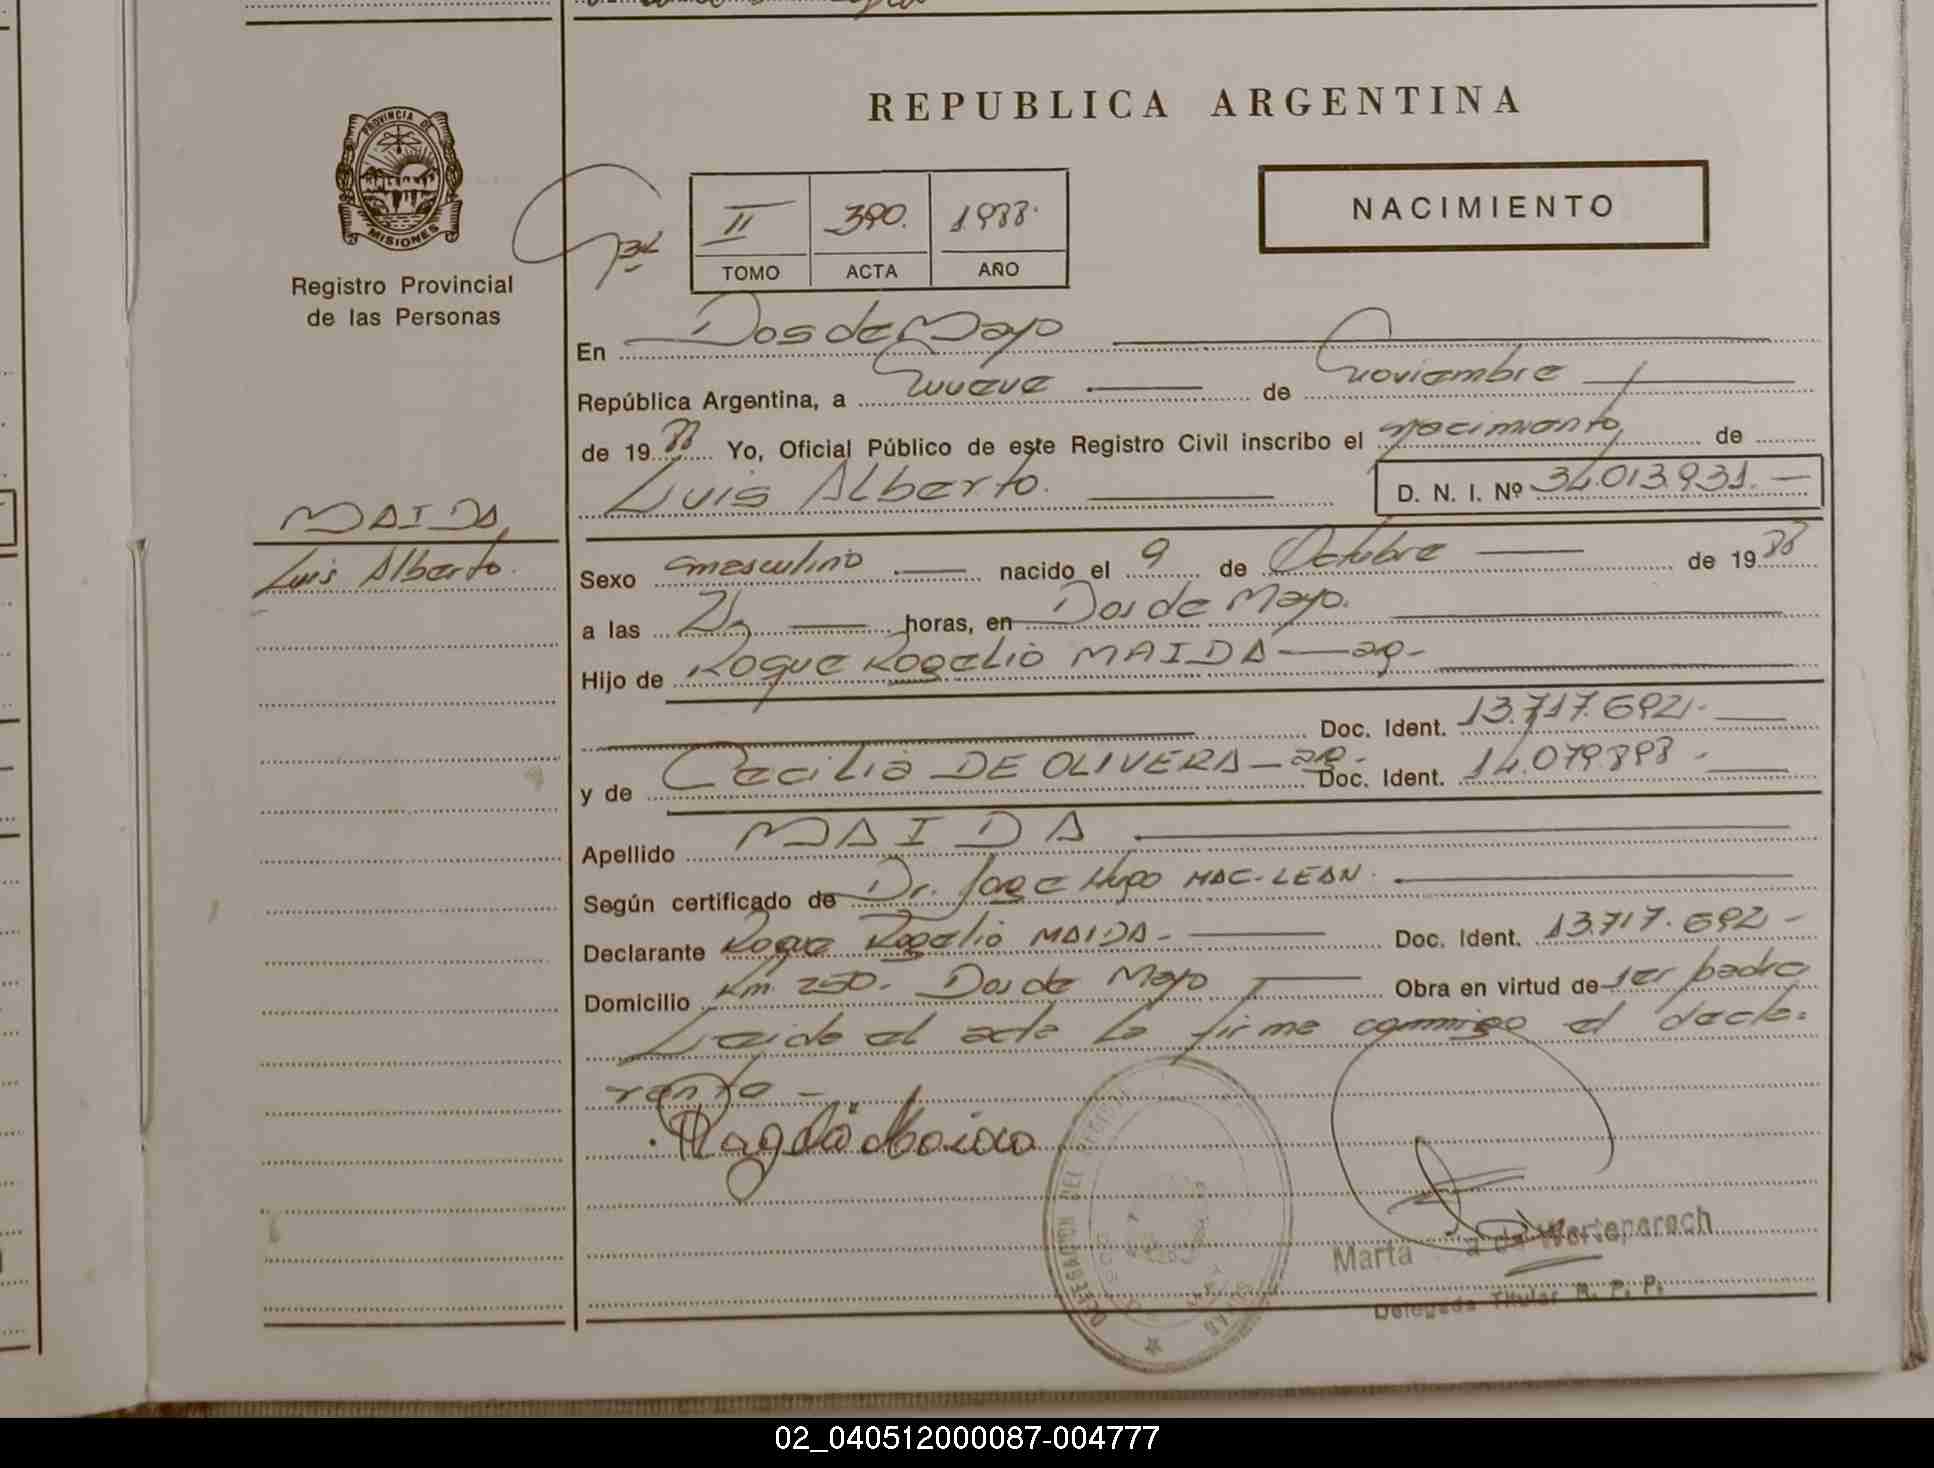 REPUBLICA ARGENTINA
PROVINCIA DE
MISIONES
Registro Provincial
de las Personas
II 390. 1.988.
TOMO ACTA AÑO
NACIMIENTO
En Dos de Mayo
República Argentina, a nueve de noviembre
de 1988 Yo, Oficial Público de este Registro Civil inscribo el nacimiento de
Luis Alberto. D. N. I. Nº 34.013.931.
MAIDA
Luis Alberto.
Sexo masculino nacido el 9 de Octubre de 1988
a las horas, en Dos de Mayo.
Hijo de Roque Rogelio MAIDA — ar-
Doc. Ident. 13.717.692.
y de Cecilia DE OLIVERA — ar- Doc. Ident. 14.079898.
Apellido MAIDA
Según certificado de Dr. Jorge Hugo MAC-LEAN.
Declarante Roque Rogelio MAIDA- Doc. Ident. 13.717.692-
Domicilio Km. 250. Dos de Mayo Obra en virtud de ser padre
Leida el acta la firma conmigo el decla-
rante-
DELEGACION DEL REGISTRO
Marta de Werteparach
Delegada Titular R. P. P.
02_040512000087-004777